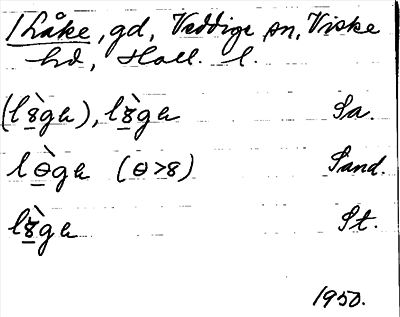 1 Låke, gd, Veddige sn, Viske
hd, Hall. l.
(lȣ̀gа), lȣ̀gа Sa.
lɵ̀ga (ɵ>8) Sand.
lȣ̀ga St.
1950.